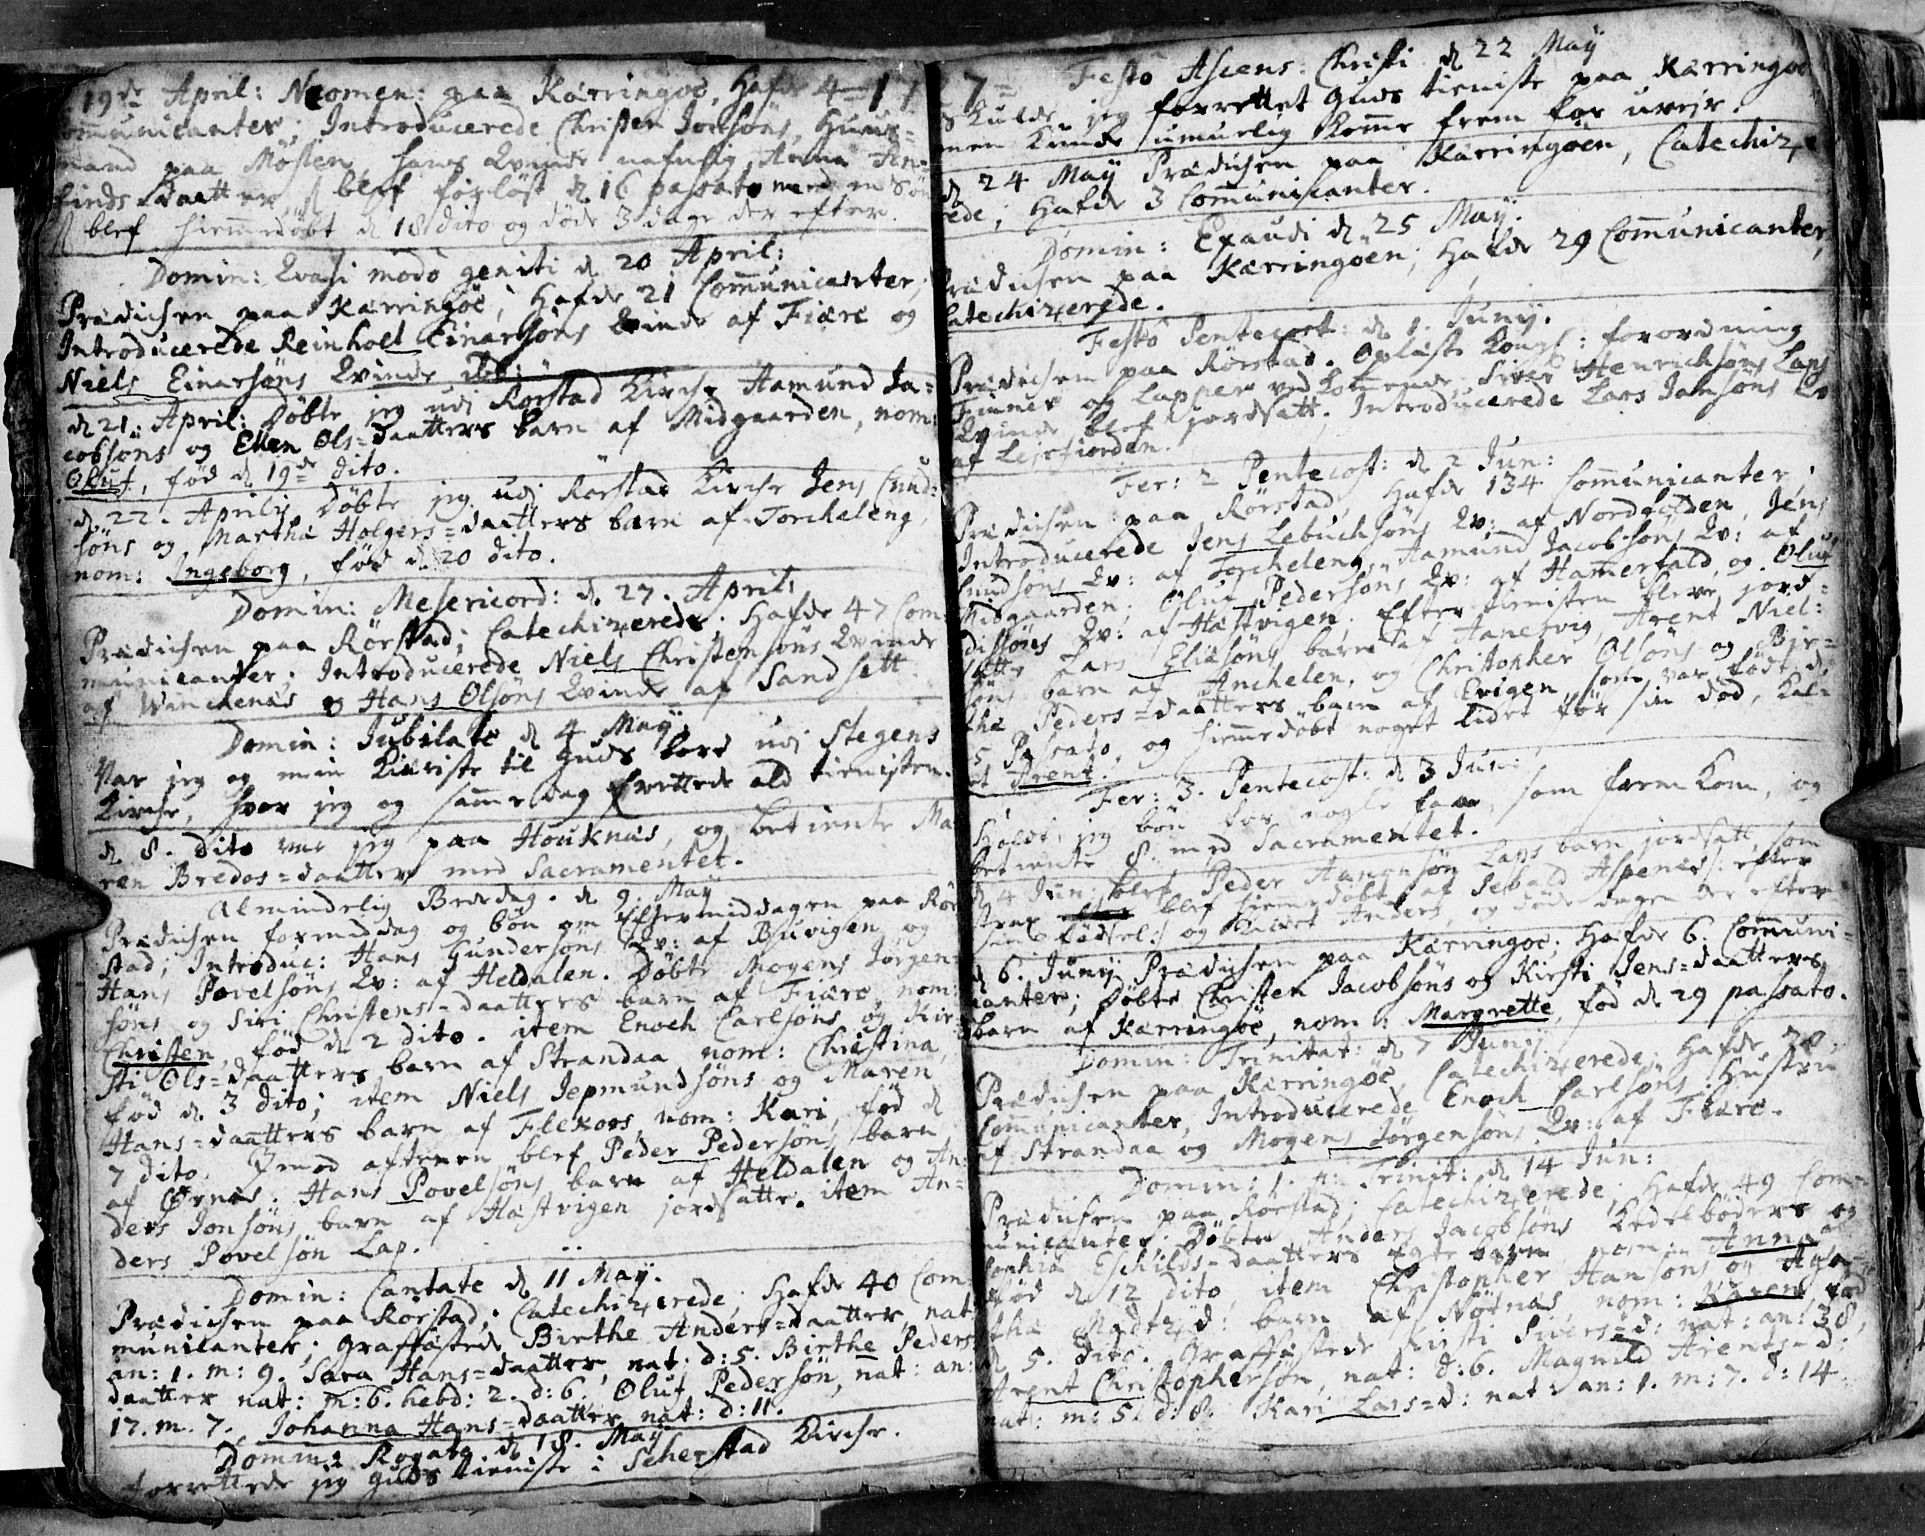 19de April: Neomen: paa Kærringöe, Hafde 4
communicanter; Introducerede Christen Jonsöns, Huus=
mand paa Mösten, hans Qvinde nafnlig Anna An=
finds daatter, blef forlöst d. 16 passato med en Sön
blef hiemmedöbt d. 18 dito og döde 3 dage der efter.
Domin: Qvasi modo geniti d. 20 April:
Prædichen paa Kærringöe, Hafde 21 Communicanter,
Introducerede Reinholt Einarsöns Qvinde af Fiære og
Niels Einarsöns Qvinde ibd:
d. 21. April: Döbte jeg udi Rörstad Kirche Aamund Ja=
cobsöns og Ellen Ols=daatters barn af Midgaarden, nom:
Oluf, föd d. 19de dito.
d. 22. Aprily Döbte jeg udi Rörstad Kirche Jens Cnud=
söns og Martha Holgers=daatters barn af Torcheleng,
nom: Ingeborg, föd d. 20 dito.
Domin: Mesericord: d. 27. April:
Prædichen paa Rörstad; Catechizerede. Hafde 47 Com=
municanter. Introducerede Niels Christensöns Qvinde
af Winchenæs og Hans Olsöns Qvinde af Sandsett.
Domin: Jubilate d. 4 May.
Var jeg og min Kiæriste til Guds bord udi Stegens
Kirche, hvor jeg og samme dag forrettede ald tienisten.
d. 8. dito var jeg paa Houknæs, og betiente Ma=
ren Bredes=daatter med Sacramentet.
Almindelig Bededag. d. 9. May
Prædichen formiddag og bön om Eftermiddagen paa Rör=
stad; Introduc: Hans Gundersöns Qv: af Buvigen og
Hans Povelsöns Qv: af Heldalen. Döbte Mogens Jörgen=
söns og Siri Christens=daatters barn af Fiære, nom:
Christen, föd d. 2 dito. item Enoch Carlsöns og Kir=
sti Ols=daatters barn af Strandaa nom: Christina,
föd d. 3 dito; item Niels Jepmundsöns og Maren
Hans=daatters barn af Flekoos, nom: Kari, föd d.
7 dito. Imod aftenen blef Peder Pedersöns barn
af Örnæs. Hans Povelsöns barn af Heldalen og An=
ders Jonsöns barn af Hastvigen jordsatte. item An=
ders Povelsön Lap.
Domin: Cantate d. 11 May.
Prædichen paa Rörstad; Catechizerede, Hafde 40 Com=
municanter; graffæstede Birthe Anders=daatter, nat:
an: 1. m: 9. Sara Hans=daatter, nat: d: 5. Birthe Peders
daatter nat: m: 6. hebd: 2. d: 6. Oluf Pedersön, nat: an:
17. m. 7. Johanna Hans=daatter nat: d: 11.
Domin: Rogate d. 18. May
forrettede jeg Guds tieniste i Scherstad Kirche.
17=
Festo Ascens: Christi d. 22 May
Skulde jeg forrettet Guds tieniste paa Kærringöe
men kunde umuelig komme frem for uvejr.
d. 24 May Prædichen paa Kærringöen, Catechize=
rede; Hafde 3 Communicanter.
Domin: Exaudi d. 25 May.
Prædichen paa Kærringöen; Hafde 29 Communicanter,
Catechizerede.
Festo Pentecost: d. 1. Juny.
Prædichen paa Rörstad. Oplæste Kongl: forordning
Finner og Lapper ved kommende. Siver Henrichsöns Laps
Qvinde blef jordsatt. Introducerede Lars Jonsöns Qv
af Lejrfiorden.
Fer: 2 Pentecost: d. 2 Jun:
Prædichen paa Rörstad, Hafde 134 Communicanter,
Introducerede Jens Lebuchsöns Qv: af Nordfolden, Jens
Cnudsöns Qv: af Torcheleng, Aamund Jacobsöns Qv: af
Midgaarden, Oluf Pedersöns Qv: af Hamerfald, og Oluf
dissöns Qv: af Hastvigen. Efter tienisten bleve jord=
satte Lars Eliæsöns barn af Aanesvig, Arent Niel=
söns barn af Anchelen, og Christopher Olsöns og Bir=
the Peders=daatters barn af Evigen, som var födt d.
5 Passato, og hiemmedöbt noget lidet för sin död, kal=
et Arent.
Fer: 3. Pentecost: d. 3 Jun:
Holdt jeg bön for nogle faae, som frem kom, og
betiente 8 med Sacramentet.
d. 4 Jun: blef Peder Aanensön Laps barn jordsatt, som
strax blef hiemmedöbt af Sevald Aspenæs /: efter
sin födsel :/ og kaldet Anders, og döde dagen der efter
d. 6. Juny Prædichen paa Kærringöe; Hafde 6. Communi=
canter; Döbte Christen Jacobsöns og Kirsti Jens=daatters
barn af Kærringöe, nom: Margrette, föd d. 29 passato.
Domin: Trinitat: d. 7 Jun:
Prædichen paa Kærringöe, Catechizerede, Hafde 28
Communicanter, Introducerede Enoch Carlsöns Hustru
af Strandaa og Mogens Jörgensöns Qv: af Fiære.
Domin: 1. p: Trinit: d. 14 Jun:
Prædichen paa Rörstad; Catechizerede; Hafde 49 Com=
municanter. Döbte Anders Jacobsöns Kedelböders og
Sophia Eschilds=daatters ægte barn nom: Anna
föd d. 12 dito, item Christopher Hansöns og Aga=
tha Madtz d: barn af Nötnæs nom: Karen, föd
d. 5. dito. Graffæstede Kirsti Sivers=d: nat: an: 38,
Arent Christophersön, nat: d: 6. Magnild Arents=d:
nat: m: 5. d: 8. Kari Lars=d: nat: an: 1. m: 7. d: 14.